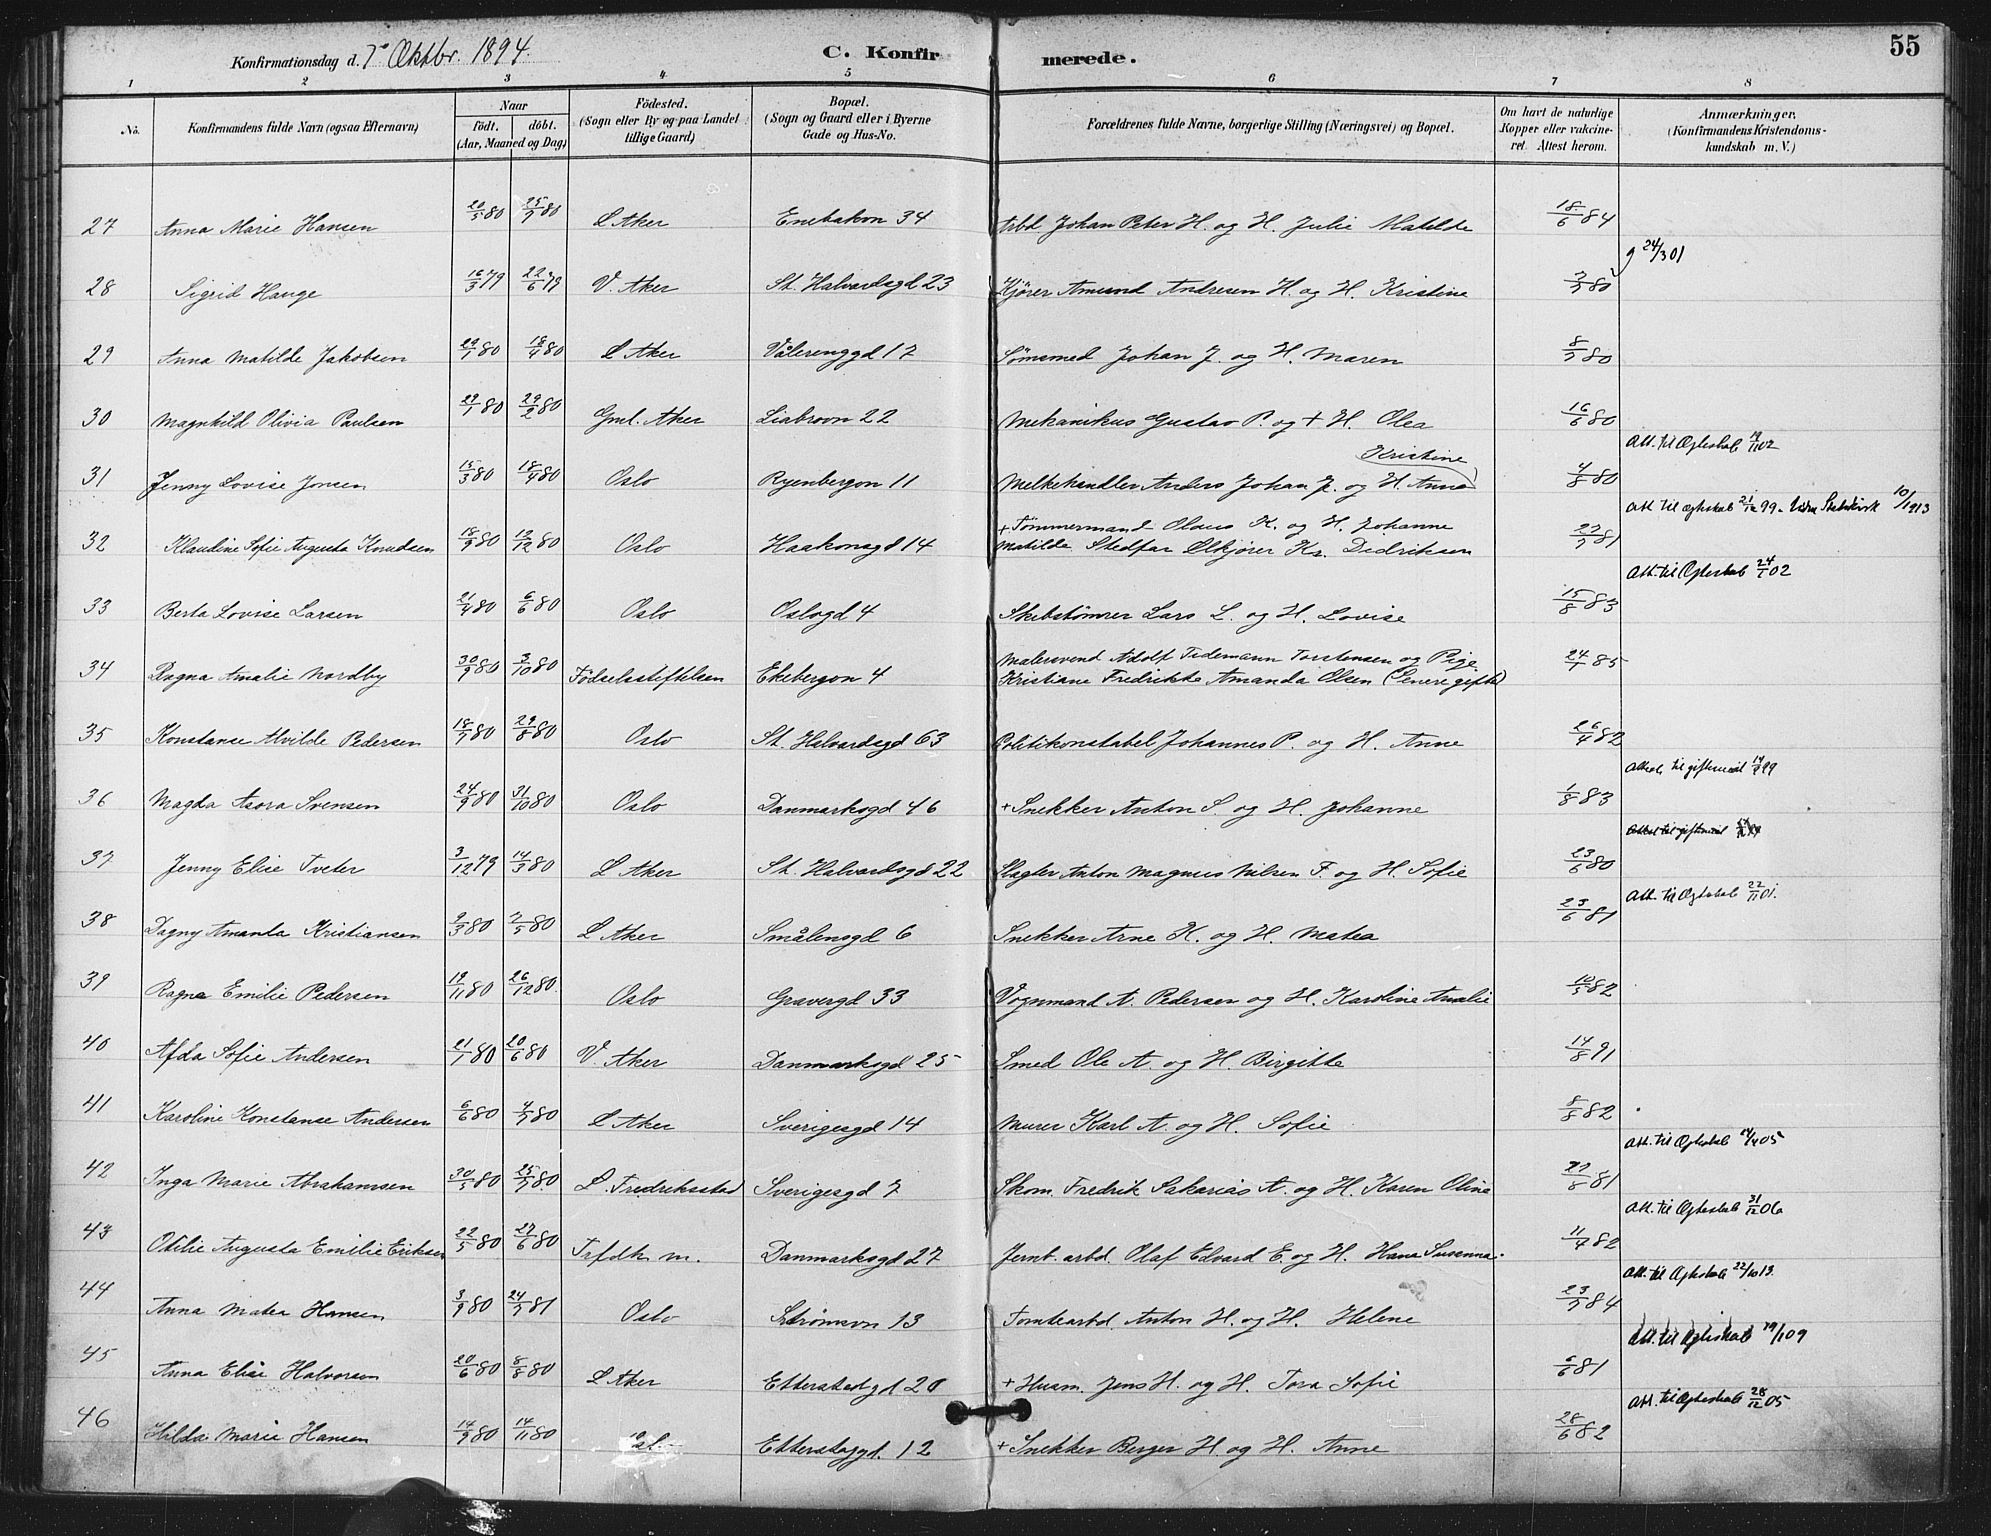 Konfirmationsdag d. 7de Oktbr. 1894.
C. Konfirmerede.
55
1 2 3 4 5 6 7 8
No. Konfirmandens fulde Navn (ogsaa Efternavn)
Naar
födt. döbt.
(Aar, Maaned og Dag)
Födested.
(Sogn eller By og paa Landet tillige Gaard)
Bopæl.
(Sogn og Gaard eller i Byerne Gade og Hus-No.
Forældrenes fulde Navne, borgerlige Stilling (Næringsvei) og Bopæl.
Om havt de naturlige Kopper eller vakcineret. Attest herom.
Anmærkninger.
(Konfirmandens Kristendomskundskab m. V.)
27 Anna Marie Hansen 20/5 80 25/7 80 L Aker Enebakvn 34 Arbd. Johan Peter H. og H. Julie Matilde 18/6 84
g 24/3 01
28 Sigrid Hauge 16/3 79 22/6 79 V. Aker St. Halvardsgd 23 Kjører Amund Andresen H. og H. Kristine 2/7 80
29 Anna Matilde Jakobsen 29/1 80 18/4 80 L Aker Vålerenggd 17 Sømsmed Johan J. og H. Maren 8/7 80
30 Magnhild Olivia Paulsen 29/1 80 29/2 80 Gml. Aker Liabrovn 22 Mekanikus Gustav P. og + H. Olea 16/6 80
Att. til Ægteskab 19/11 02
31 Jenny Lovise Jonsen 15/3 80 18/4 80 Oslo Ryenbergvn 11 Melkehandler Anders Johan J. og H. Anna Kristine 4/8 80
Att til ægteskab 21/12 99. 10/1 1913
32 Klaudine Sofie Augusta Knudsen 18/9 80 19/12 80 Oslo Haakonsgd 14 + Tømmermand Olaus K. og H. Johanne Matilde Stedfar Ølkjører Kr. Didriksen 27/7 81
Att. til Ægteskab 24/1 02
33 Berta Lovise Larsen 21/4 80 6/6 80 Oslo Oslogd 4 Skibstømrer Lars L. og H. Lovise 15/8 83
34 Dagna Amalie Nordby 30/9 80 3/10 80 Fødselsstiftelsen Ekebergvn 4 Malersvend Adolf Tidemann Torstensen og Pige Kristiane Fredrikke Amanda Olsen (Senere gift) 24/7 85
35 Konstanse Alvilde Pedersen 18/7 80 29/8 80 Oslo St. Halvardsgd 63 Politikonstabel Johannes P. og H. Anne 26/4 82
Attest til giftermål 14/9 99
36 Magda Asora Svensen 24/9 80 31/10 80 Oslo Danmarksgd 46 + Snekker Anton S. og H. Johanne 1/8 83
37 Jenny Elise Tveter 3/12 79 14/3 80 L Aker St. Halvardsgd 22 Slagter Anton Magnus Nilsen T. og H. Sofie 23/6 80
Att. til Ægteskab 22/11 01.
38 Dagny Amanda Kristiansen 9/3 80 2/5 80 L Aker Smålensgd 6 Snekker Arne K. og H. Matea 23/6 81
39 Ragna Emilie Pedersen 19/11 80 26/12 80 Oslo Gravergd 33 Vognmand A. Pedersen og H. Karoline Amalie 10/5 82
40 Afda Sofie Andersen 21/1 80 20/6 80 V. Aker Danmarksgd 25 Smed Ole A. og H. Birgitte 14/8 91
41 Karoline Konstanse Andersen 6/6 80 4/7 80 L Aker Sverigesgd 14 Murer Karl A. og H. Sofie 8/8 82
Att. til Ægteskab 14/4 05
42 Inga Marie Abrahamsen 30/5 80 25/7 80 L. Fredriksstad Sverigesgd 7 Skom. Fredrik Sakarias A. og H. Karen Oline 27/8 81
Att. til Ægteskab 31/12 06
43 Otilie Augusta Emilie Eriksen 22/5 80 27/6 80 Trfdk m. Danmarksgd 27 Jernb. arbd. Olaf Edvard E. og H. Hana Susanna 11/4 82
Att. til Ægteskab 22/10 13.
44 Anna Matea Hansen 3/9 80 24/7 81 Oslo Strømsvn 13 Tomtearbd. Anton H. og H. Helene 23/7 84
Att. til Ægteskab 19/1 09
45 Anna Elise Halvorsen 20/6 80 8/8 80 L Aker Etterstadgd 20 + Husm. Jens H. og H. Tora Sofie 6/6 81
Att. til Ægteskab 28/12 05
46 Hilda Marie Hansen 14/9 80 14/11 80 Etterstadgd. 12 + Snekker Berger H. og H. Anne 28/6 82